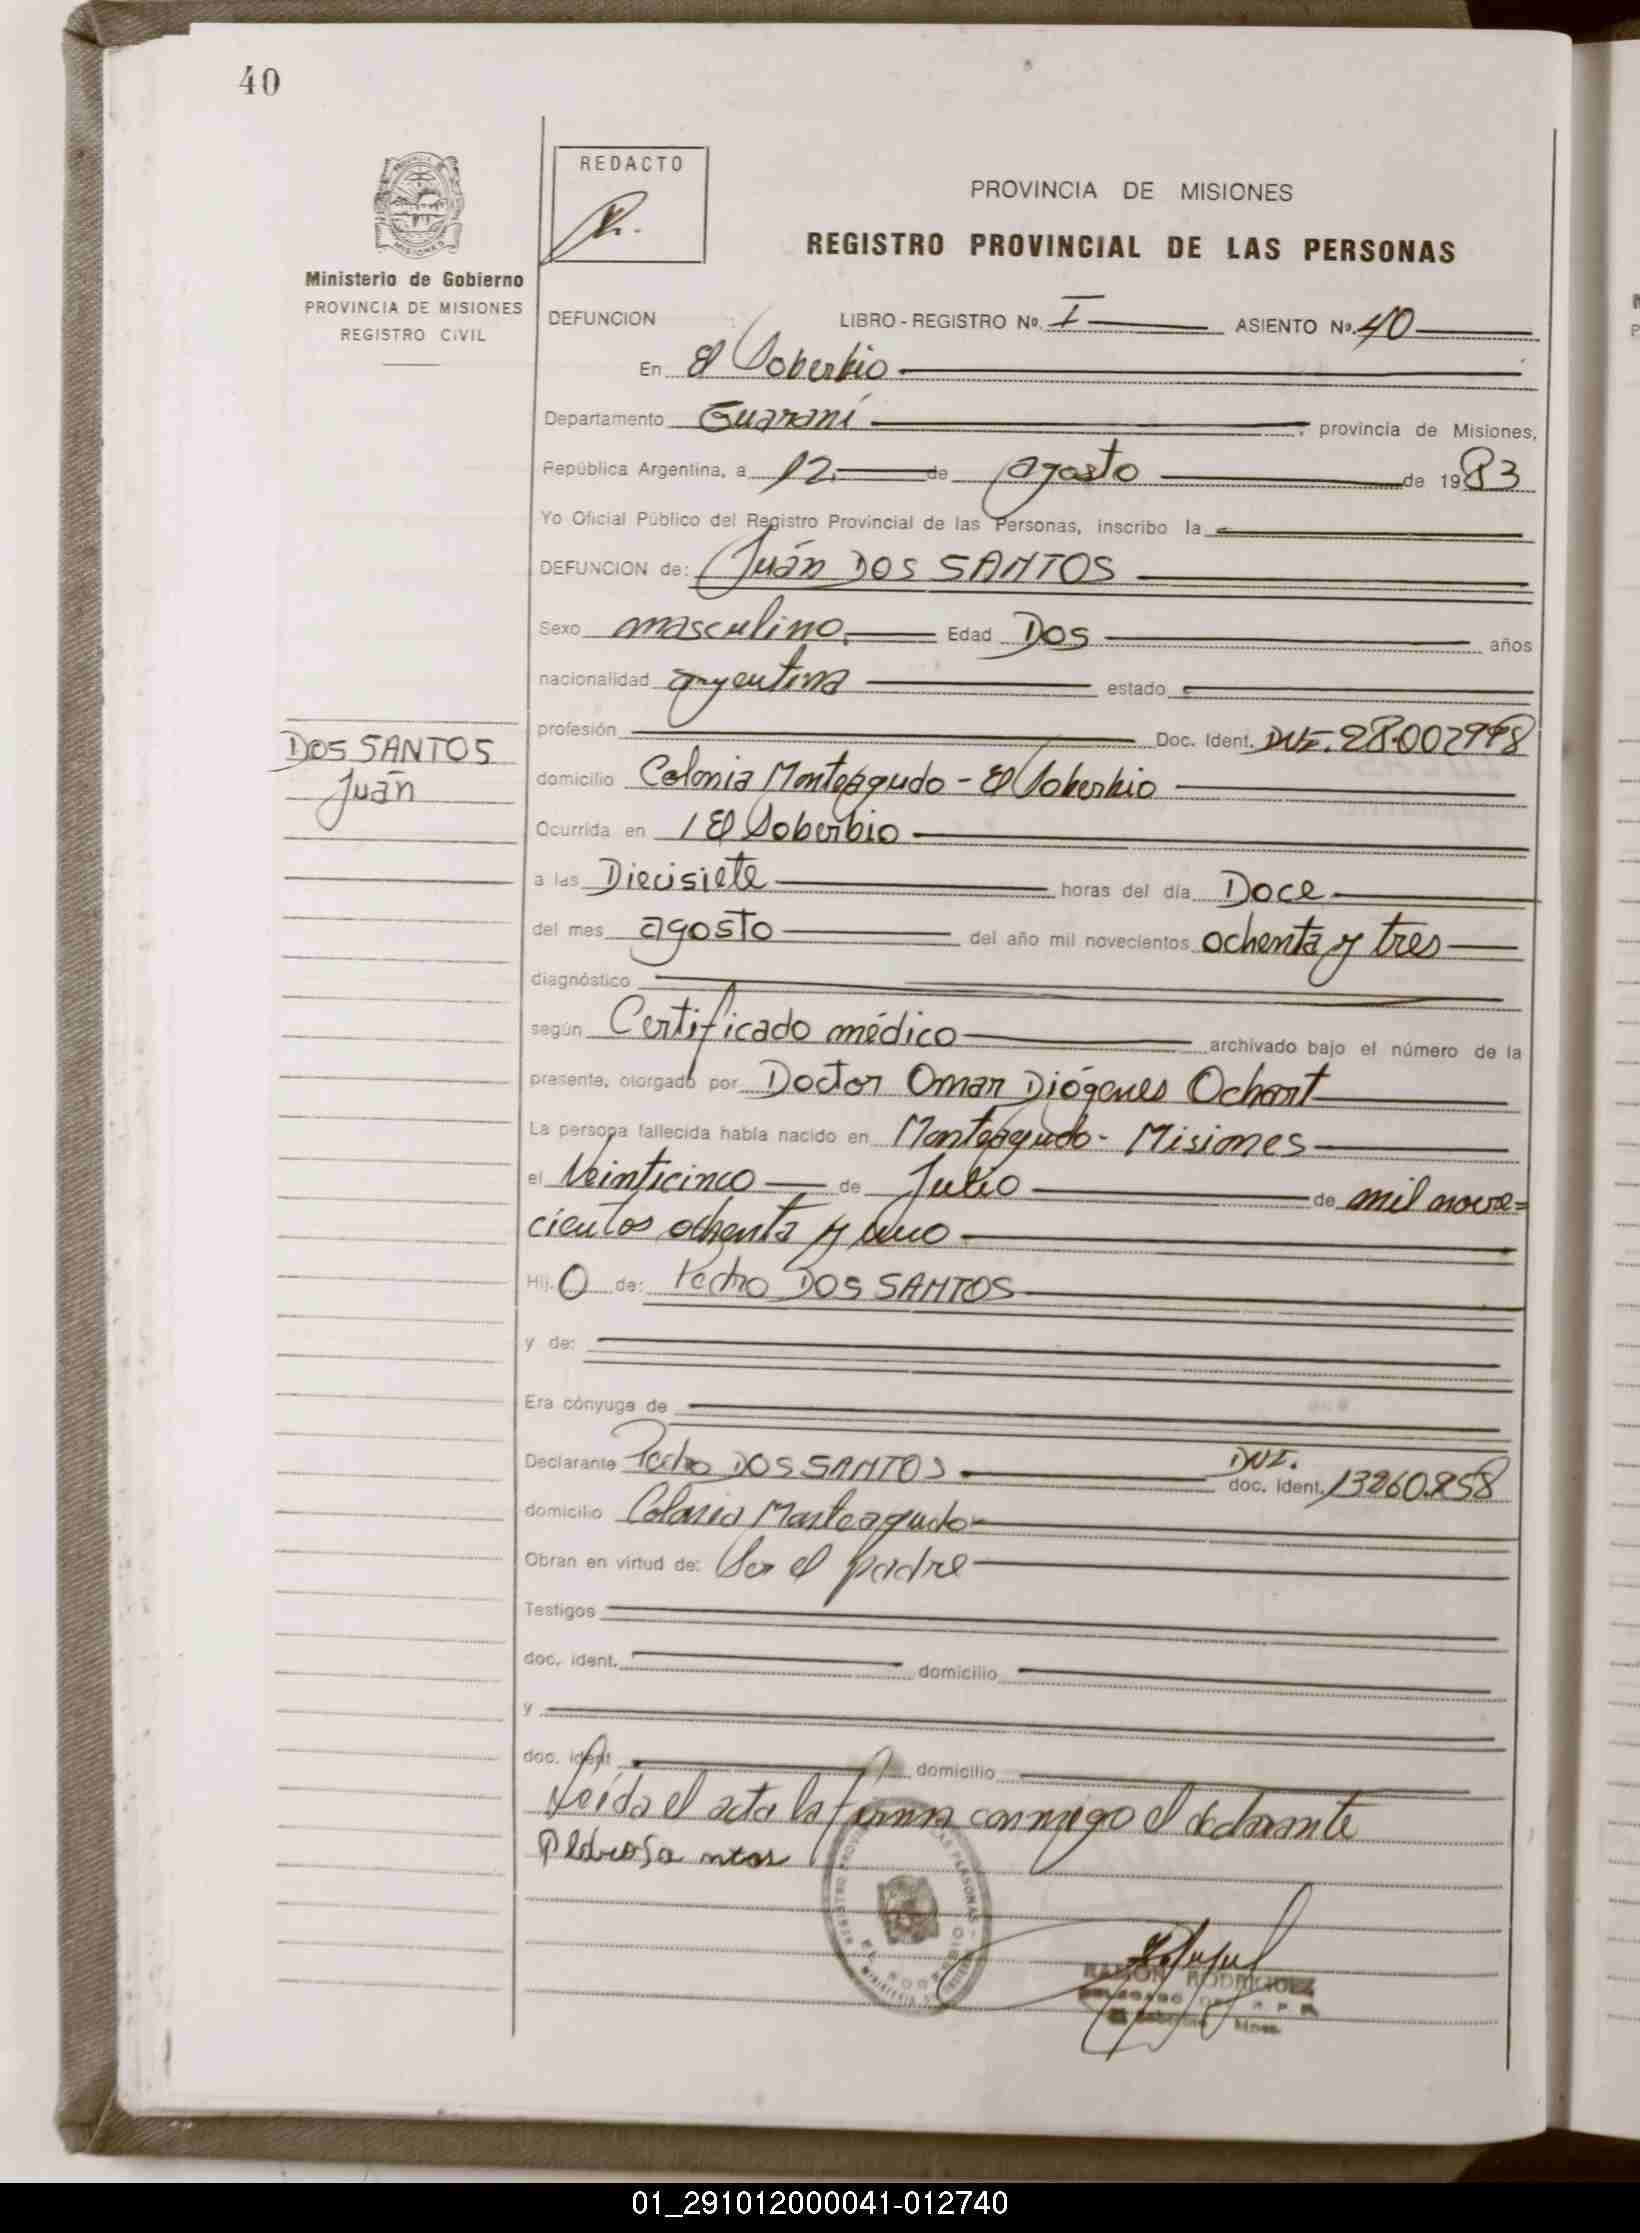 40
REDACTO
PROVINCIA DE MISIONES
REGISTRO PROVINCIAL DE LAS PERSONAS
Ministerio de Gobierno
PROVINCIA DE MISIONES
REGISTRO CIVIL
DEFUNCION LIBRO - REGISTRO Nº. I ASIENTO Nº. 40
En El Soberbio
Departamento Guaraní , provincia de Misiones,
República Argentina, a 12 de agosto de 1983
Yo Oficial Público del Registro Provincial de las Personas, inscribo la
DEFUNCION de: Juán DOS SANTOS
Sexo masculino, Edad Dos años
nacionalidad argentina estado
profesión Doc. Ident. DNI. 28.002998
DOS SANTOS
Juán
domicilio Colonia Monteagudo - El Soberbio
Ocurrida en El Soberbio
a las Diecisiete horas del día Doce
del mes agosto del año mil novecientos ochenta y tres
diagnóstico
según Certificado médico archivado bajo el número de la
presente, otorgado por Doctor Omar Diógenes Ochart
La persona fallecida había nacido en Monteagudo - Misiones
el Veinticinco de Julio de mil nove=
cientos ochenta y uno
Hij O de: Pedro DOS SANTOS
y de:
Era cónyuge de
Declarante Pedro DOS SANTOS DNI. doc. ident. 13260.858
domicilio Colonia Monteagudo
Obran en virtud de: Ser el padre
Testigos
doc. ident. domicilio
y
doc. ident domicilio
Leída el acta la firma conmigo el declarante
RAMON RODRIGUEZ
01_291012000041-012740